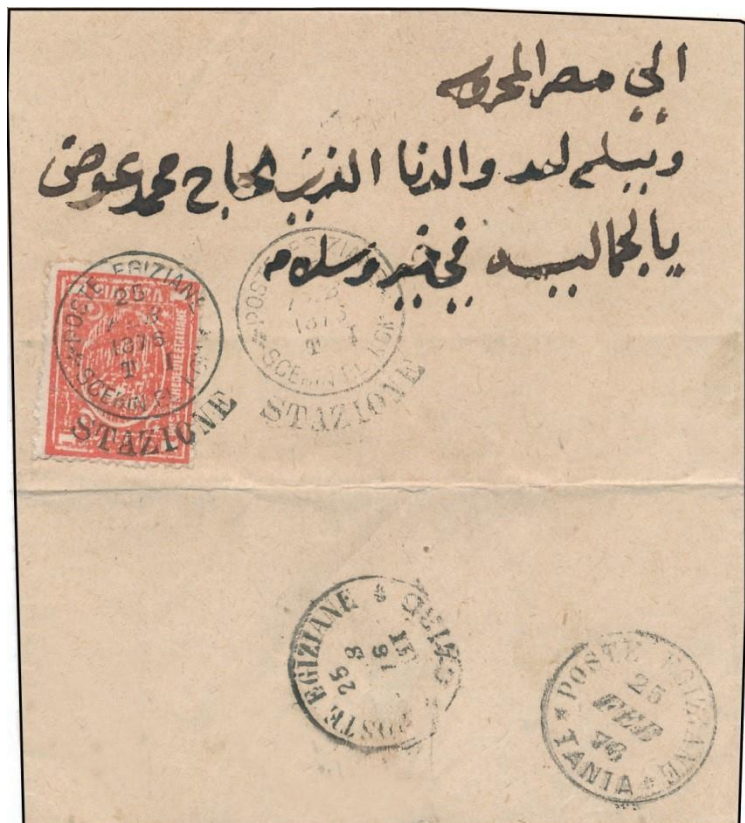 الى مصر المحروسه
وتسلم ليد والدنا العزيز الحاج محمد عوض
بالجماليه في خير وسلام
POSTE EGIZIANE
25
1876
T I
SCERBIN EL
STAZIONE
POSTE EGIZIANE
1876
T I
SCERBIN EL
STAZIONE
POSTE EGIZIANE
CAIRO
25
POSTE EGIZIANE
25
FEB
76
TANTA